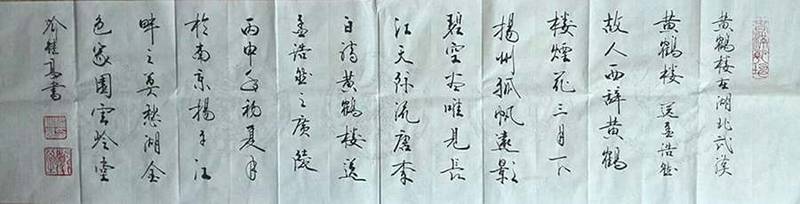 黄鹤楼在湖北武汉
黄鹤楼 送孟浩然
故人西辞黄鹤
楼煙花三月下
揚州孤帆遠影
碧空尽唯見長
江天际流唐李
白诗黄鹤楼送
孟浩然之廣陵
丙申年初夏月
於南京楊子江
畔之莫愁湖金
色家園雲岭堂
書